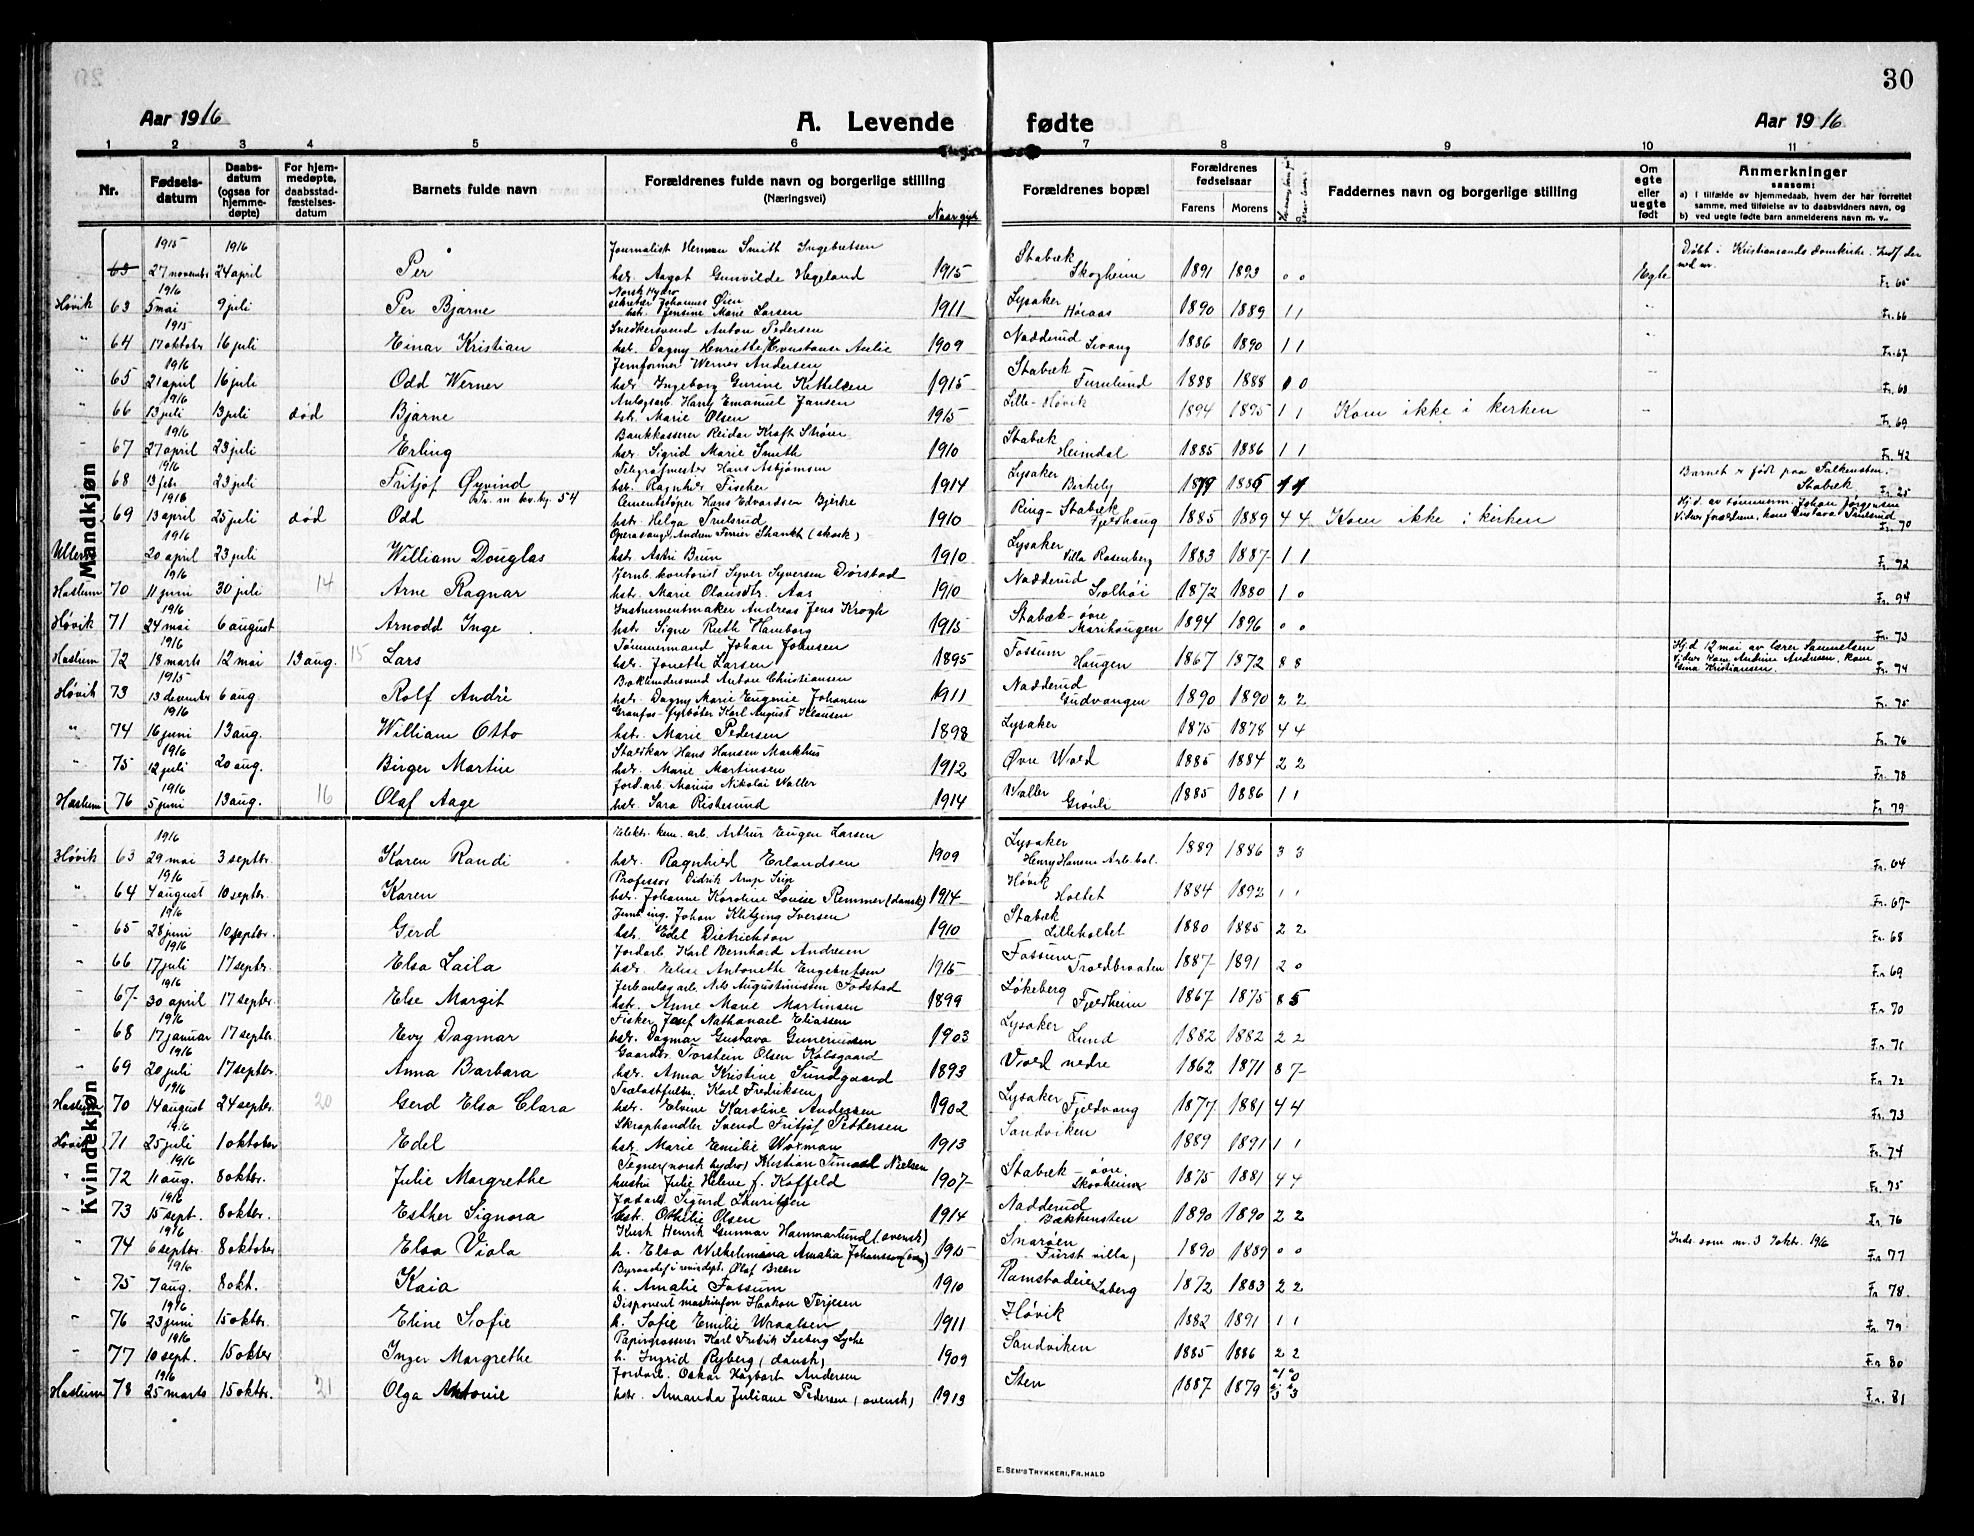 30
Aar 1916 A. Levende fødte Aar 1916
1 2 3 4 5 6 7 8 9 10 11
Nr. Fødsels-datum Daabs-datum (ogsaa for hjemme-døpte) For hjem-medøpte, daabsstad-fæstelses-datum Barnets fulde navn Forældrenes fulde navn og borgerlige stilling (Næringsvei) Naar gift Forældrenes bopæl Forældrenes fødselsaar Farens Morens Faddernes navn og borgerlige stilling Om egte eller uegte født Anmerkninger saasom:
a) i tilfælde av hjemmedaab, hvem der har forrettet samme, med tilføielse av to daabsvidners navn, og
b) ved uegte fødte barn anmelderens navn m. v..
Mandkjøn
1915 1916 Journalist Herman Smith Ingebretsen Stabæk Døbt i Kristiansands domkirke. Indf. der
63 27 november 24 april Per hstr. Aagot Gunvilde Hegeland 1915 Skogheim 1891 1893 0 0 Egte Fr. 65
1916 Norsk Hydro sekretær Johannes Øien Lysaker
Høvik 63 5 mai 9 juli Per Bjarne hstr. Jensine Marie Larsen 1911 1890 1889 1 1 " Fr. 66
1915 Snedkersvend Anton Pedersen Nadderud
" 64 17 oktober 16 juli Einar Kristian hst. Dagny Henriette Konstanse Amlie 1909 Levang 1886 1890 1 1 " Fr. 67
1916 Jernformer Werner Andersen Stabæk
" 65 21 april 16 juli Odd Werner hstr. Ingeborg Gurine Kittelsen 1915 Furulund 1888 1888 1 0 " Fr. 68
1916 Anlægsarb. Harry Emanuel Jansen Lille-Høvik
" 66 13 juli 13 juli død Bjarne hst. Marie Olsen 1915 1894 1895 1 1 Kom ikke i kirken " Fr. 69
1916 Bankkasserer Reidar Kraft Strøm Stabæk
" 67 27 april 23 juli Erling hstr. Sigrid Marie Smith 1910 Heimdal 1885 1886 1 1 Fr. 42
1916 Telegrafmester Hans Asbjørnsen Lysaker Barnet er født paa Falkensten, Stabæk
" 68 13 febr 23 juli Fritjof Øyvind hst. Ragnhild Fischer 1914 Birkely 1879 1885 1 1 Fr. 25
1916 Cementstøper Hans Edvardsen Bjerke Ring-Stabæk Hj.d. av tømmerm. Johan Jørgensen
" 69 13 april 25 juli død Odd hst. Helga Trulsrud 1910 Fjeldhaug 1885 1889 4 4 Kom ikke i kirken Fr. 70
1916 Lysaker
Ullern 20 april 23 juli William Douglas hst. Astri Brun 1910 Villa Rosenberg 1883 1887 1 1 Fr. 92
1916 Jernb. kontorist Syver Syversen Dørstad Nadderud
Haslum 70 11 juni 30 juli 14 Arne Ragnar hst. Marie Olausdtr. Aas 1910 Solhøi 1872 1880 1 0 Fr. 94
1916 Instrumentmaker Andreas Jens Krogh Stabæk-øvre
Høvik 71 24 mai 6 august Arnodd Inge hst. Signe Ruth Hamborg 1915 Marihaugen 1894 1896 0 0 Fr. 73
1916 Tømmermand Johan Johnsen Fossum Hj.d 12 mai av lærer Samuelsen
Haslum 72 18 marts 12 mai 13 aug. 15 Lars hstr. Jonette Larsen 1895 Haugen 1867 1872 8 8 Vidner kone Andrine Andresen, kone Gina Kristiansen. Fr. 74
1915 Bokbindersvend Anton Christiansen Nadderud
Høvik 73 13 december 6 aug. Rolf André hst. Dagny Marie Eugenie Johansen 1911 Gudvangen 1890 1890 2 2 Fr. 75
1916 Karl August Klausen
" 74 16 juni 13 aug. William Otto hst. Marie Pedersen 1898 Lysaker 1875 1878 4 4 Fr. 76
1916 Staldkar Hans Hansen Markhus
" 75 12 juli 20 aug. Birger Martin hstr. Marie Martinsen 1912 Øvre Wold 1885 1884 2 2 Fr. 78
1916 Jord.arb. Marius Nikolai Waller Waller
Haslum 76 5 juni 13 aug. 16 Olaf Aage hstr. Sara Ristesund 1914 Grønli 1885 1886 1 1 Fr. 79
Kvindekjøn
1916 Elektr. kem. arb. Arthur Eugen Larsen Lysaker
Høvik 63 29 mai 3 septbr. Karen Randi hstr. Ragnhild Erlandsen 1909 Henry Hansens Arb. bol. 1889 1886 3 3 Fr. 64
1916 Professor Didrik Arup Seip Høvik
" 64 4 august 10 septbr. Karen hstr. Johanne Karoline Louise Remmer (dansk) 1914 Holtet 1884 1892 1 1 Fr. 67
1916 Johan Klitzing Iversen Stabæk
" 65 28 juni 10 septbr. Gerd hst. Edel Dietrichson 1910 Lilleholtet 1880 1885 2 2 Fr. 68
1916 Jordarb. Karl Bernhard Andresen Fossum
" 66 17 juli 17 septbr. Elsa Laila hstr. Elise Antonette Engebretsen 1915 Troldbraaten 1887 1891 2 0 Fr. 69
1916 Jernb. anlæg arb. Nils Augustinussen Fodstad Løkeberg
" 67 30 april 17 septbr. Else Margit hst. Anne Marie Martinsen 1899 Fjeldheim 1867 1875 8 5 Fr. 70
1916 Fisker Josef Nathanael Eliassen Lysaker
" 68 17 januar 17 septbr. Evy Dagmar hstr. Dagmar Gustava Guneriussen 1903 Lund 1882 1882 2 2 Fr. 71
1916 Gaardbr. Torstein Olsen Kalsgaard
" 69 20 juli 17 septbr. Anna Barbara hstr. Anna Kristine Sundgaard 1893 Vold nedre 1862 1871 8 7 Fr. 72
1916 Karl Fredriksen Lysaker
Haslum 70 14 august 24 septbr. 20 Gerd Elsa Clara hstr. Elvine Karoline Andersen 1902 Fjeldvang 1877 1881 4 4 Fr. 73
1916 Skraphandler Svend Fritjof Pettersen
Høvik 71 25 juli 1 oktober Edel hst. Marie Emilie Woxman 1913 Sandviken 1889 1891 1 1 Fr. 74
1916 Tegner (norsk hydro) Kristian Nielsen Stabæk-øvre.
" 72 11 aug. 8 oktbr. Julie Margrethe hustru Julie Helene f. Koffeld 1907 Skovheim 1875 1881 4 4 Fr. 75
1916 Jordarb Sigurd Lauritzen Nadderud
" 73 15 sept. 8 oktbr. Esther Signora hst. Othilie Olsen 1914 Bakkensten 1890 1890 2 2 Fr. 76
1916 Kusk Henrik Gunnar Hammarlund (svensk) Snarøen
" 74 6 septbr 8 oktober Elsa Viola h. Elsa Wilhelmina Amalia Johansson (sv.) 1915 Fürst villa) 1890 1889 0 0 Inds. som nr. 3 9 oktr. 1916 Fr. 77
1916 Byraachef i revis.dept. Olaf Breen
" 75 7 aug. 8 okt. Kaia h. Amalie Fossum 1910 Ramstadeie Soberg 1872 1883 2 2 Fr. 78
1916 Disponent maskinfor. Haakon Terjesen
" 76 23 juni 15 oktbr. Eline Sofie h. Sofie Emilie Wraalsen 1911 Høvik 1882 1891 1 1 Fr. 79
1916 Papirgrosserer Karl Fredrik Seeberg Lyche
" 77 10 sept. 15 oktbr Inger Margrethe h. Ingrid Ryberg (dansk) 1909 Sandviken 1885 1886 2 2 Fr. 80
1916 Jordarb. Oskar Hagbart Andersen
Haslum 78 25 marts 15 oktbr. 21 Olga Antonie hstr. Amanda Juliane Pedersen (svensk) 1913 Sten 1887 1879 Fr. 81
E. SEM'S TRYKKERI, FR.HALD